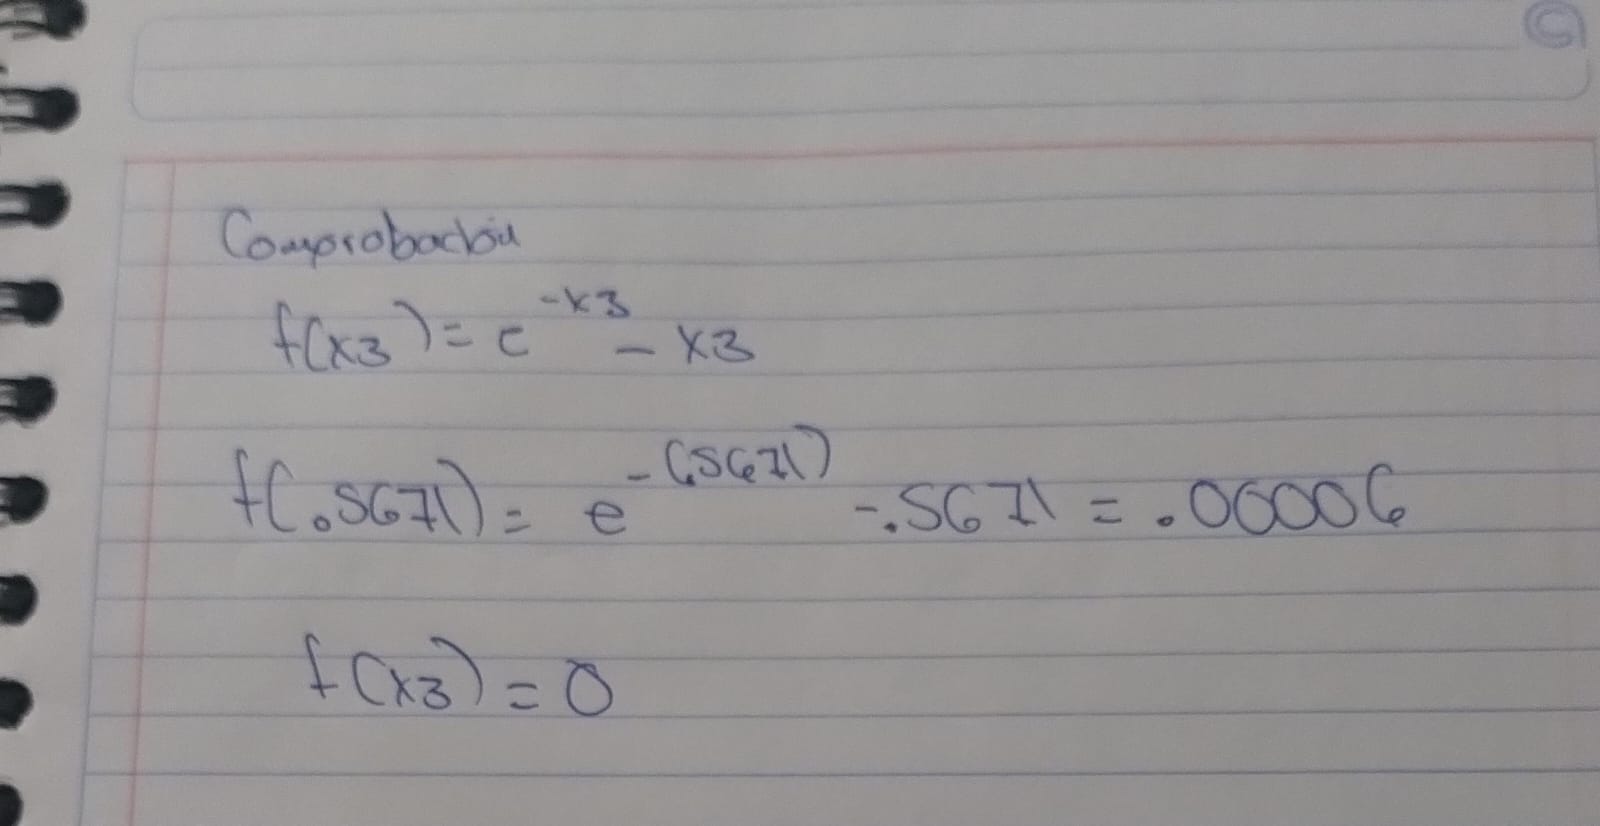 Comprobación
f(x3) = e^-x3 - x3
f(.5671) = e^-(.5671) -.5671 = .00006
f(x3) = 0